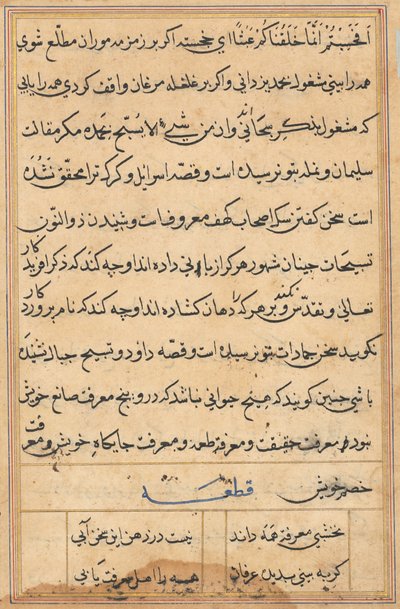 افحسبتم انما خلقناکم عبثا ای خجسته اکر بر زمزمه موران مطلع شوی
همه را بینی مشغول تحمید یزدانی و اکر بر غلغله مرغان واقف کردی همه را یابی
که مشغول بذکر سبحانی اند وان من شیء الا یسبح بحمده مکر مقالت
سلیمان و نمله بتو نرسیده است و قصه اسرائیل و کرکه ترا محقق نشده
است سخن کفتن سک اصحاب کهف معروف است و شنیدن ذوالنون
تسبیحات حیتان مشهور هر کرا زبانی داده اند او چه کند که ذکر افریدکار
تعالی و تقدس نکند و هر که را دهان کشاده اند او چه کند که نام پروردکار
نکوید سخن جمادات بتو نرسیده است و قصه داود و تسبیح جبال نشنیده
باشی چنین کویند که هیچ حیوانی نباشد که درو پنج معرفت صانع خویش
نبود معرفت حقیقت و معرفت طعمه و معرفت جایکاه خویش و معرفت
خصم خویش قطعه
نخشبی معرفت همه داند نیست در ذهن این سخن آبی
کر به بینی بدیده عرفان همه را اهل معرفت یابی